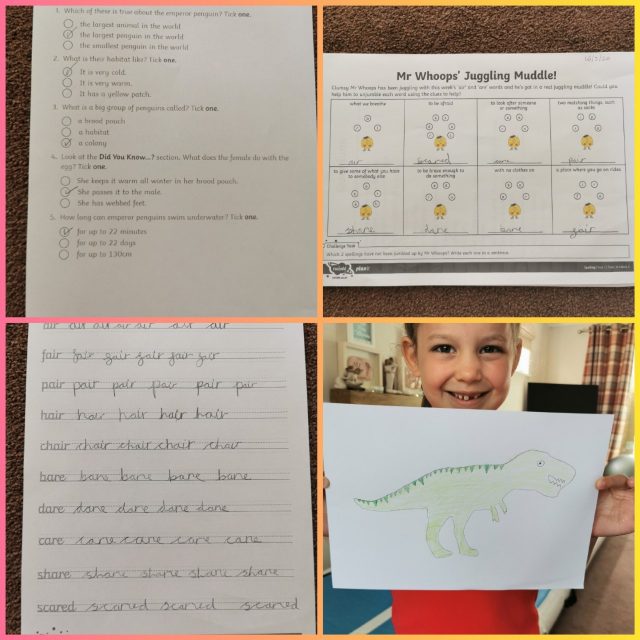 1. Which of these is true about the emperor penguin? Tick one.
the largest animal in the world
the largest penguin in the world
the smallest penguin in the world
2. What is their habitat like? Tick one.
It is very cold.
It is very warm.
It has a yellow patch.
3. What is a big group of penguins called? Tick one.
a brood pouch
a habitat
a colony
4. Look at the Did You Know...? section. What does the female do with the
egg? Tick one.
She keeps it warm all winter in her brood pouch.
She passes it to the male.
She has webbed feet.
5. How long can emperor penguins swim underwater? Tick one.
for up to 22 minutes
for up to 22 days
for up to 130cm
Mr Whoops' Juggling Muddle!
Clumsy Mr Whoops has been juggling with this week's 'air' and 'are' words and he's got in a real juggling muddle! Could you
help him to unjumble each word using the clues to help?
what we breathe
to be afraid
to look after someone
or something
two matching things, such
as socks
air scared care pair
to give some of what you have
to somebody else
to be brave enough to
do something
with no clothes on
a place where you go on rides
share dare bare fair
Challenge Task
Which 2 spellings have not been jumbled up by Mr Whoops? Write each one in a sentence.
twinkl planit
air air air air air air air
fair fair fair fair fair fair
pair pair pair pair pair pair
hair hair hair hair hair
chair chair chair chair chair
bare bare bare bare bare
dare dare dare dare dare
care care care care care
share share share share share
scared scared scared scared